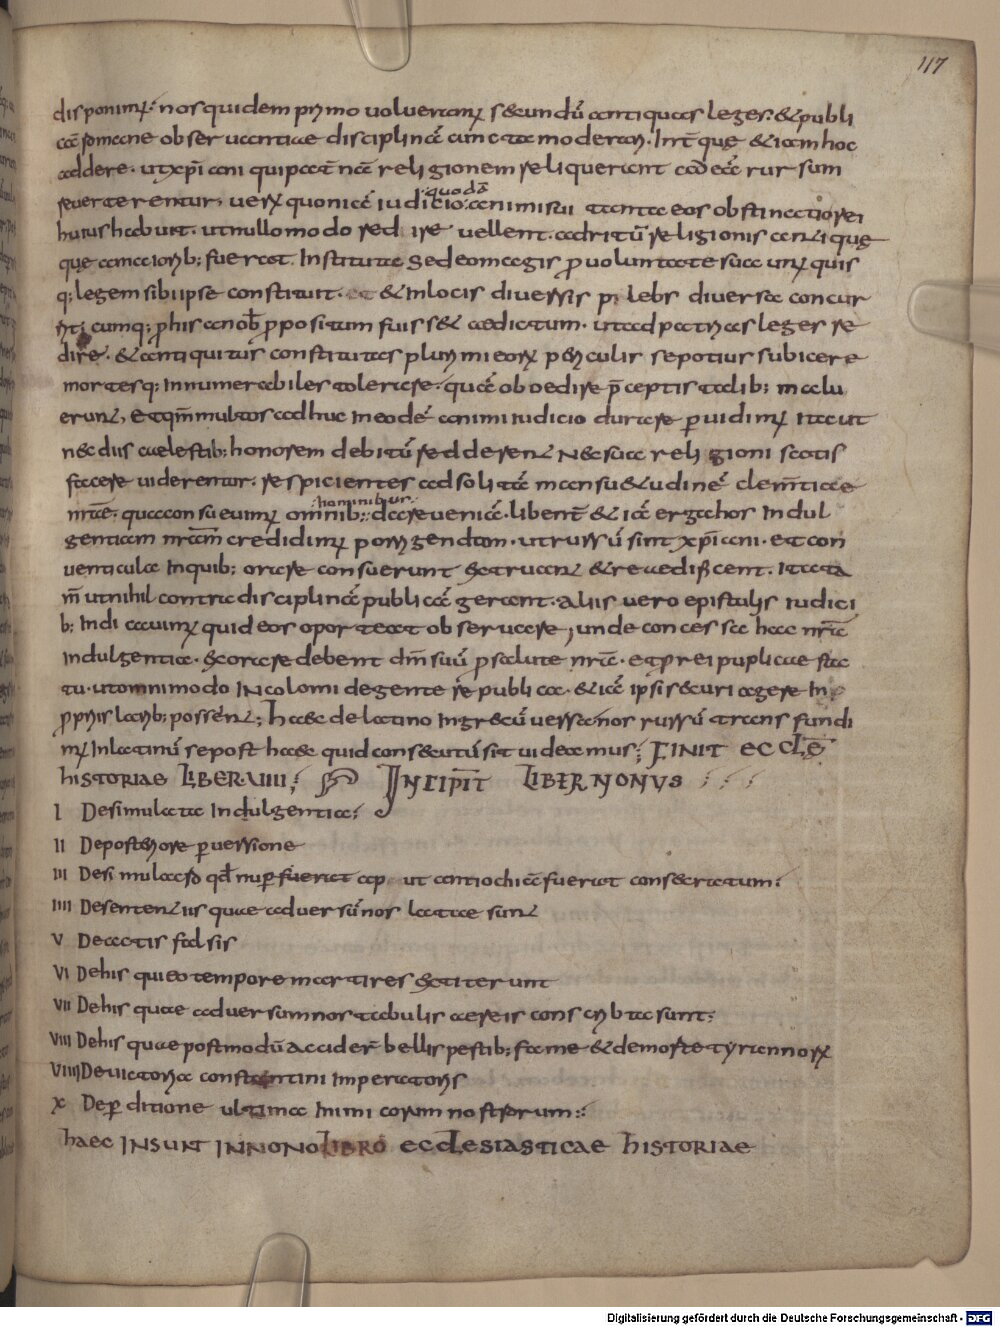 117
disponimus: nos quidem primo volueramus secundū antiquas leges & publi
cā romane observantiae disciplinā cuncta moderari. Inrt̄ quę & iam hoc
addere. ut xp̄iani qui patrū suā religionem reliquerant ad eā rursum
reverterentur, verū quoniā iudicio quodā animi sui tanta eos obstinatio rei
huius habuit. ut nullo modo redire vellent. ad ritū religionis antique
quę a maiorib; fuerat Instituta sed eo magis p voluntate sua unus quis
q; legem sibi ipse constituit. & Inlocis diversis plebs diversa concur
rit; cumq; p his a nob̄ ppositum fuisset aedictum. ut ad patrias leges re
dire. & antiquitus constitutas plurimi eorū periculis se potius subicere
mortesq; Innumerabiles tolerare. quā oboedire p̄ceptis talib; malu
erunt, Et qm̄ multos adhuc In eodē animi iudicio durare p vidimus ita ut
nec diis caelestib; honorem debitū redderent Nec suae religioni satis
facere viderentur. respicientes ad solitā mansuetudinē clem̄tiae
nrae. qua consuevimus omnib; hominibus dare veniā. libent̄ & iā erga hos Indul
gentiam nram credidimus porrigendam. ut rursū sint xp̄iani. et con
venticula In quib; orare consuerunt extruant & reaedificent. Ita ta
m̄ ut nihil contra disciplinā publicā gerant. Aliis vero epistulis iudici
b; Indicavimus quid eos oporteat observare, unde concessa hac nra
Indulgentia. exorare debent dm̄ suū p salute nra. et p rei puplicae sta
tu. ut omnimodo Incolomi degente re publica. & iā ipsi securi agere In
ppriis locis possent; haec de latino In grecū versa nos rursū transfundi
mus In latinū sed post haec quid consecutū sit videamus; FINIT ECCLĒ
historiae LIBER VIIII; INCIPIT LIBER NONUS
I De simulata Indulgentia;
II De posteriore p versione
III De simulacro qd̄ nuper fuerat ap ut antiochiā fuerat consecratum.
IIII De sententiis quae adversū nos latae sunt
V De actis falsis
VI De his qui eo tempore martires extiterunt
VII De his quae adversum nos tabulis aereis conscribta sunt.
VIII De his quae postmodū acciderī bellis pestib; fame & de morte tyrannorū
VIIII De victoria constantini Imperatoris
X De p ditione ultima Inimicorum nostrorum;
haec INSUNT IN NONO LIBRO ECCLESIASTICAE HISTORIAE
Digitalisierung gefördert durch die Deutsche Forschungsgemeinschaft - DFG